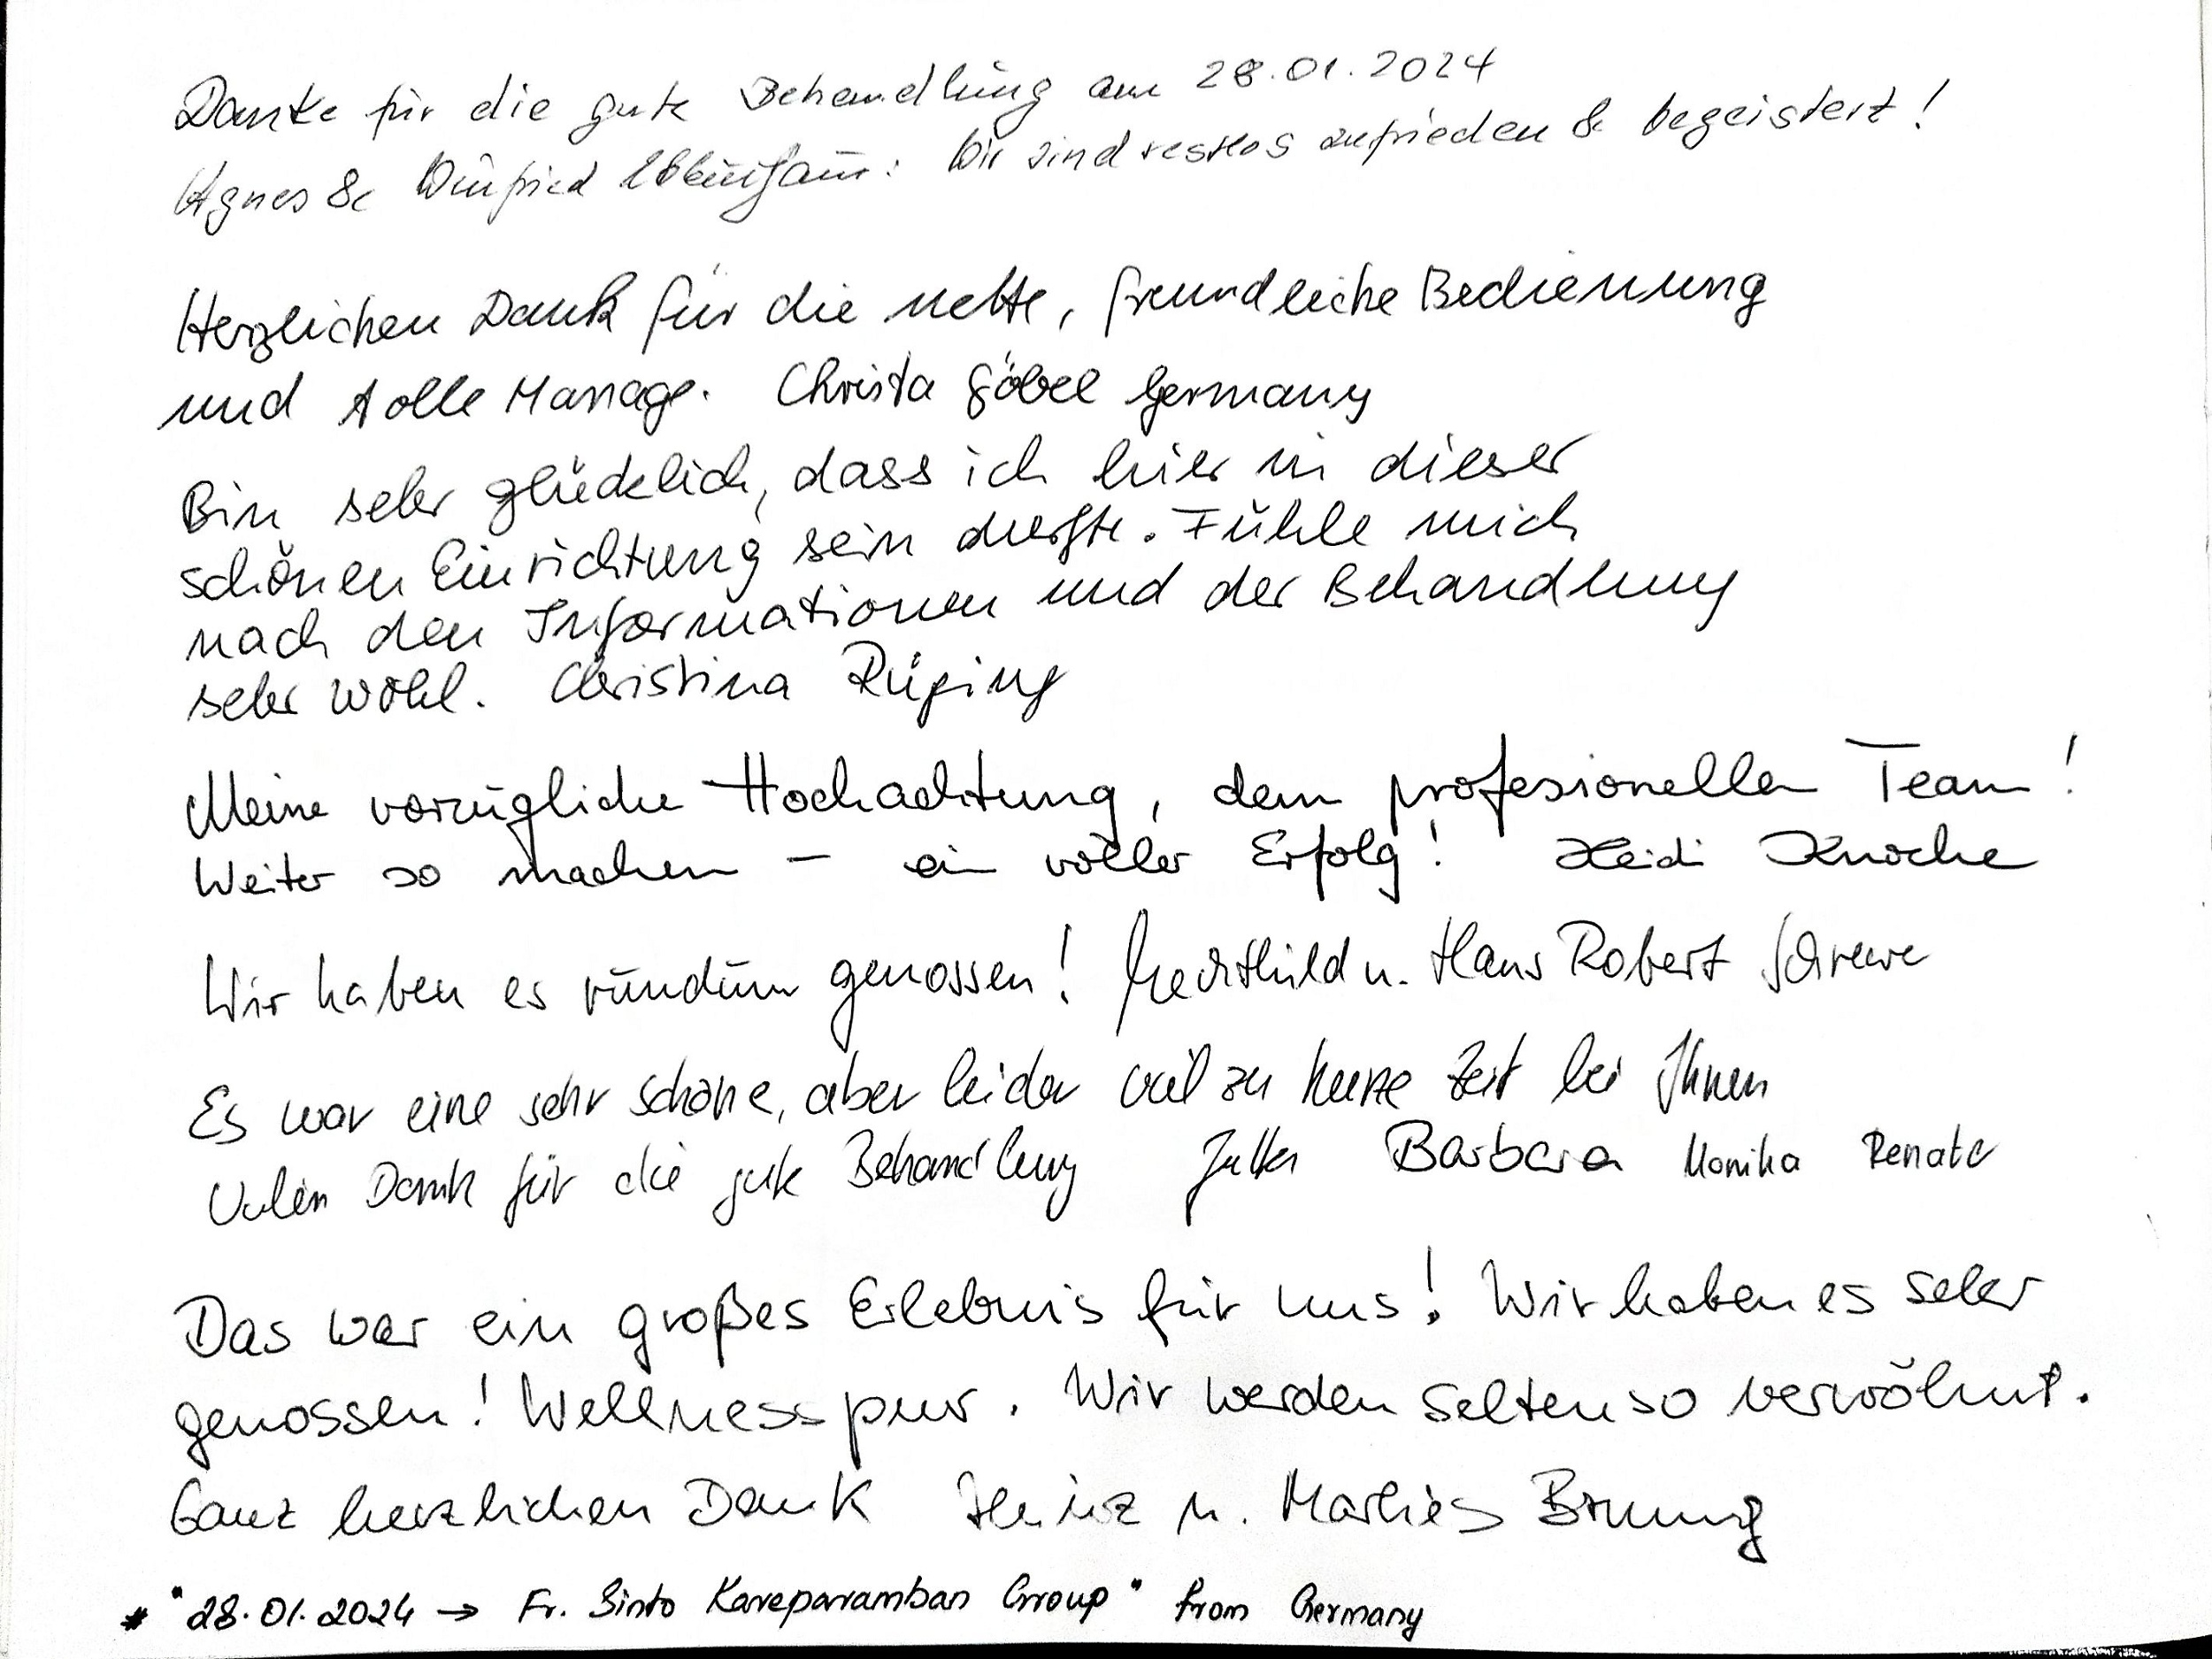 Danke für die gute Behandlung am 28.01.2024
Agnes & Winfried : Wir sind restlos zufrieden & begeistert!
Herzlichen Dank für die nette, freundliche Bedienung
und tolle Massage. Christa Göbel Germany
Bin sehr glücklich, dass ich hier in dieser
schönen Einrichtung sein durfte. Fühle mich
nach den Informationen und der Behandlung
sehr wohl. Christina Rüping
Meine vorzügliche Hochachtung, dem profesionellen Team!
Weiter so machen – ein voller Erfolg! Heidi Knoche
Wir haben es rundum genossen! Mechthild u. Hans Robert
Es war eine sehr schöne, aber leider viel zu kurze Zeit bei Ihnen
Vielen Dank für die gute Behandlung Jutta Barbara Monika Renate
Das war ein großes Erlebnis für uns! Wir haben es sehr
genossen! Wellness pur. Wir werden selten so verwöhnt.
Ganz herzlichen Dank Heinz u. Marlies
* "28.01.2024 → Fr. Sinto Kareparamban Group" from Germany